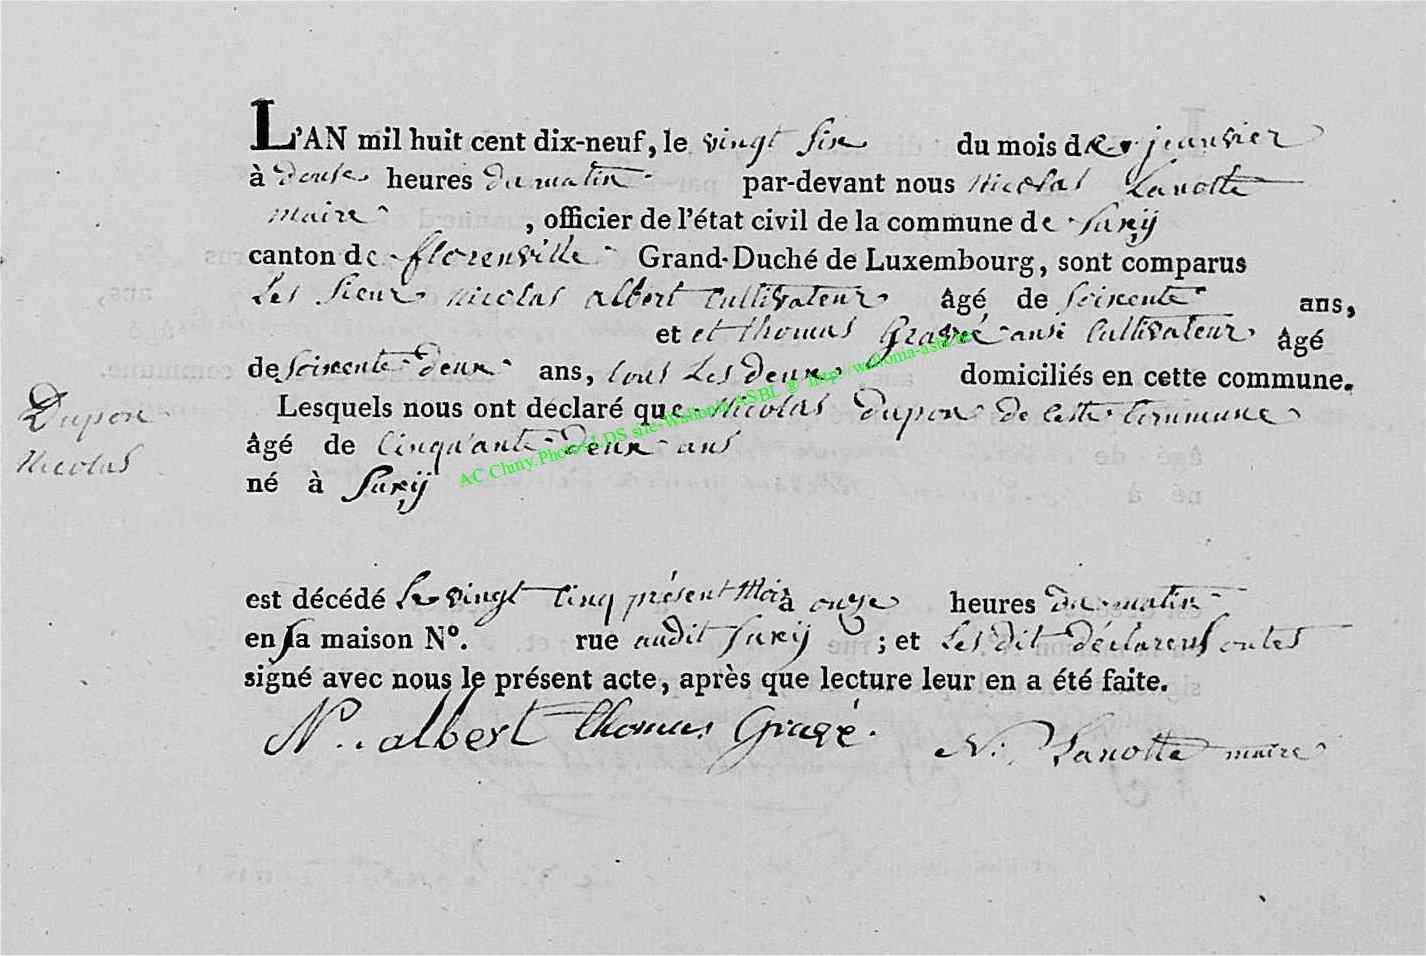 L'AN mil huit cent dix-neuf, le vingt six du mois de janvier
à douse heures du matin par-devant nous nicolas Lanotte
maire, officier de l'état civil de la commune de Suxÿ
canton de florenville Grand-Duché de Luxembourg, sont comparus
Les sieur nicolas albert Cultivateur âgé de soixente ans,
et et thomas Gragé ausi Cultivateur âgé
de soixente deux ans, tous Les deux domiciliés en cette commune.
Dupon
Nicolas
Lesquels nous ont déclaré que nicolas dupon de cette Commune
âgé de Cinquante deux ans
né à Suxÿ
AC Chiny.Photos LDS site-Wallonia ASBL @ http://wallonia-asbl.be
est décédé Le vingt Cinq présent Mois à onze heures du matin
en sa maison N°. rue audit Suxÿ ; et Les dit déclarens ontes
signé avec nous le présent acte, après que lecture leur en a été faite.
N. albert thomas Gragé. N. Lanotte maire